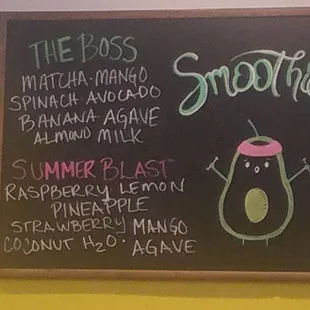 THE BOSS
MATCHA-MANGO
SPINACH AVOCADO
BANANA AGAVE
ALMOND MILK
SUMMER BLAST
RASPBERRY LEMON
PINEAPPLE
STRAWBERRY MANGO
COCONUT H2O. AGAVE
Smoothi